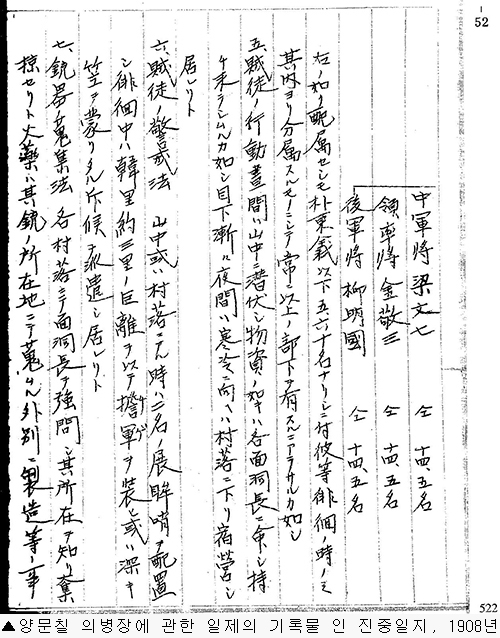 52
中軍将 梁文七 仝 十四、五名
領率将 金敬三 仝 十四、五名
後軍将 柳明國 仝 十四、五名
右ノ如ク配属セシモ朴東義以下五、六十名ナリシニ付彼等徘徊ノ時ノミ
其内ヨリ分属スルモノニシテ常ニ以上ノ部下ヲ有スルニアラサルカ如シ
五、賊徒ノ行動 晝間ハ山中ニ潜伏シ物資ノ如キハ各面洞長ニ命シ持
チ来ラシムルカ如シ目下漸ク夜間ハ寒冷ニ向ヘハ村落ニ下リ宿営シ
居レリト
六、賊徒ノ警戒法 山中或ハ村落ニ入ル時ハ二名ノ展眺哨ヲ配置
シ徘徊中ハ韓里約三里ノ巨離ヲ以テ擔軍ヲ装ヒ或ハ深キ
笠ヲ蒙リタル斥候ヲ派遣シ居レリト
七、銃器蒐集法 各村落ニテ面洞長ヲ強問シ其所在ヲ知リ奪
掠セリト火薬ハ其銃ノ所在地ニテ蒐ムル外別ニ製造等ノ事
522
▲양문칠 의병장에 관한 일제의 기록물 인 진중일지, 1908년